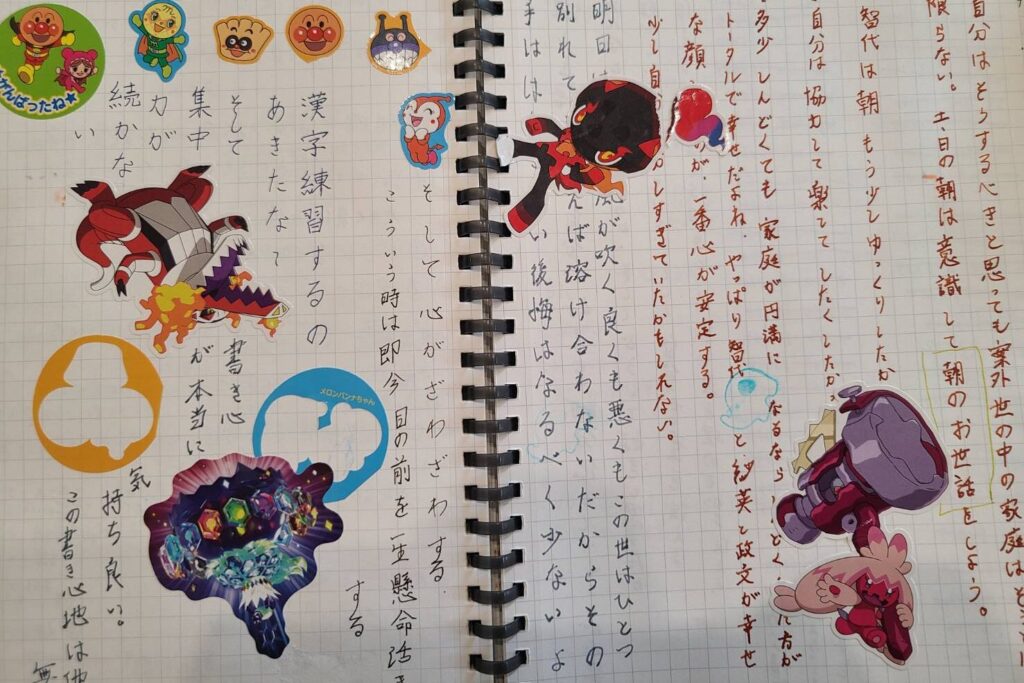 自分はそうするべきと思っても案外世の中の家庭は
限らない。土、日の朝は意識して朝のお世話をしよう。
智代は朝 もう少しゆっくりしたか
自分は協力して楽して したくしたか
多少しんどくても 家庭が円満に なるなら 方が
トータルで幸せだよね。やっぱり智代 と紗英と政文が幸せ
な顔 が、一番心が安定する。
少し自 しすぎていたかもしれない。
明日は 風が吹く良くも悪くもこの世はひとつ
別れて ば溶け合わないだからその
手はは い後悔はなるべく少ないよ
そして心がざわざわする。
こういう時は即今目の前を一生懸命活き
する
漢字練習するの
あきたなって
そして
集中
力が
続かな
い
書き心
が本当に
気
持ち良い。
この書き心地は
無
がんばったね★
メロンパンナちゃん